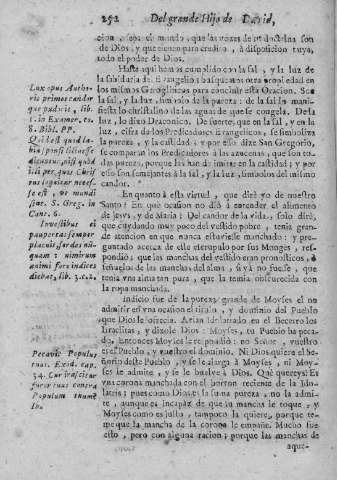 252 Del grande Hijo de David,
cion, sepa el mundo, que las vozes de tu doctrina son
de Dios, y que tienen para credito, à disposicion tuya,
todo el poder de Dios.
Hasta aqui hemos cumplido con la sal, y la luz de
la sabiduria de Evangelio: busquemos otra propiedad en
los mismos Geroglificos para concluir esta Oracion. Son
la sal, y la luz, simbolo de la pureza: de la sal lo
fiesta lo christalino de las aguas de que se congela. De la
luz, lo dixo Draconico. De suerte, que en la sal, y en la
luz, cifra de los Predicadores Evangelicos, se simboliza
la pureza, y la castidad: y por esso dize San Gregorio,
se comparan los Predicadores à las azucenas, que son
das pureza, porque las han de imitar en la castidad; y por
esso son semejantes à la sal, y la luz, simbolos del mismo
candor.
En quanto à esta virtud, que dirè yo de nuestro
Santo? En què ocasion no diò à entender el alimento
de Jesus, y de Maria? Del candor de la vida, solo dirè,
que cuydando muy poco del vestido pobre, tenia gran-
de atencion en que nunca estuviesse manchado: y pre-
guntado acerca de este escrupulo por sus Monges, res-
pondiò: que las manchas del vestido eran pronosticos, ò
señales de las manchas del alma, y si yà no fuesse, que
tenia vna alma tan pura, que la temia obscurecida con
la ropa manchada.
Indicio fue de la pureza grande de Moyses el no
admitir en vna ocasion el titulo, y dominio del Pueblo
que Dios le ofrecia. Avian idolatrado en el Becerro los
Israelitas, y dizole Dios: Moyses, tu Pueblo ha peca-
do. Entonces Moyses le respondiò: no Señor, vuestro
es el Pueblo, y vuestro el dominio. Ni Dios quiere el Se-
ñorio deste Pueblo, y se le alarga à Moyses, ni Moy-
ses le admite, y se le buelve à Dios. Què quereys? Es
vna corona manchada con el borron reciente de la Ido-
latria; pues como Dios es la suma pureza, no la admi-
te, aunque es incapaz de que la mancha le toque, y
Moyses como es justo, tampoco la quiere, porque te-
me que la mancha de la corona le empañe. Mucho fue
esto, pero con alguna razon; porque las manchas de
aque-
Lux opus Autho-
ris primos candor
que pudoris, lib.
1. in Examer. to.
8. Bibl. PP.
Quid est quod la-
bia sponsi lilia esse
dicuntur, nisi quod
lilij per quos Chris-
tus loquitur neces-
se est, vt mundi
sint. S. Greg. in
Cant. 6.
paupertas semper
placuit, sordes nū-
quam: nimirum
animi fore indices
dictitat, lib. 3. c. 2.
Peccavit Populus
tuus. Exod. cap.
34. Cur irascitur
furor tuus contra
Populum tuum?
Ib.